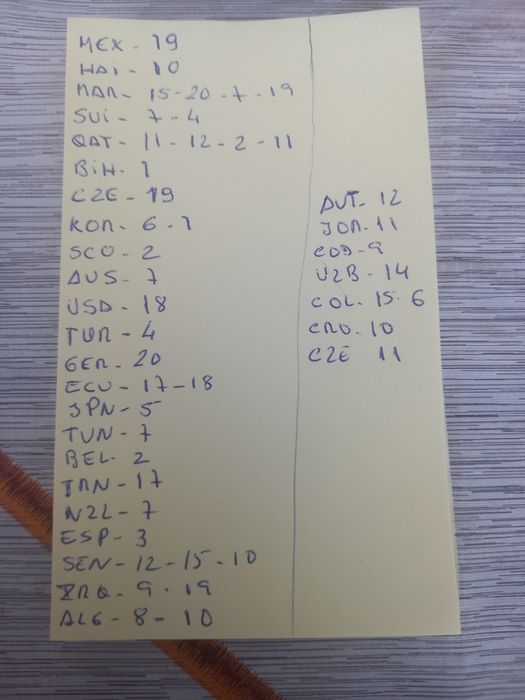 MEX - 19
HAi - 10
MAR - 15 - 20 - 7 - 19
SUi - 7 - 4
QAT - 11 - 12 - 2 - 11
BiH - 1
CZE - 19
KOR - 6 - 1
SCO - 2
AUS - 7
USA - 18
TUR - 4
GER - 20
ECU - 17 - 18
JPN - 5
TUN - 7
BEL - 2
IRN - 17
NZL - 7
ESP - 3
SEN - 12 - 15 - 10
IRQ - 9 - 19
ALG - 8 - 10
AUT - 12
JOR - 11
COD - 9
UZB - 14
COL - 15 - 6
CRO - 10
CZE 11